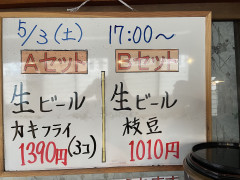 5/3(土) 17:00〜
Aセット
生ビール
カキフライ
1390円(3コ)
Bセット
生ビール
枝豆
1010円